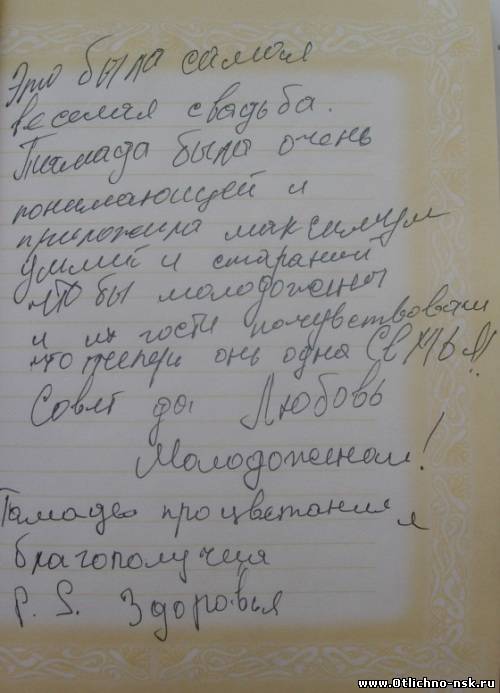 Это была самая
веселая свадьба.
Тамада была очень
понимающей и
приложила максимум
умний и стараний
что бы молодожены
и их гости почувствовали
что теперь онь одна СемЬЯ!!
Совет да Любовь
Молодоженам!
Тамаде процветания и
благополучия
P. S. Здоровья
www.Otlichno-nsk.ru